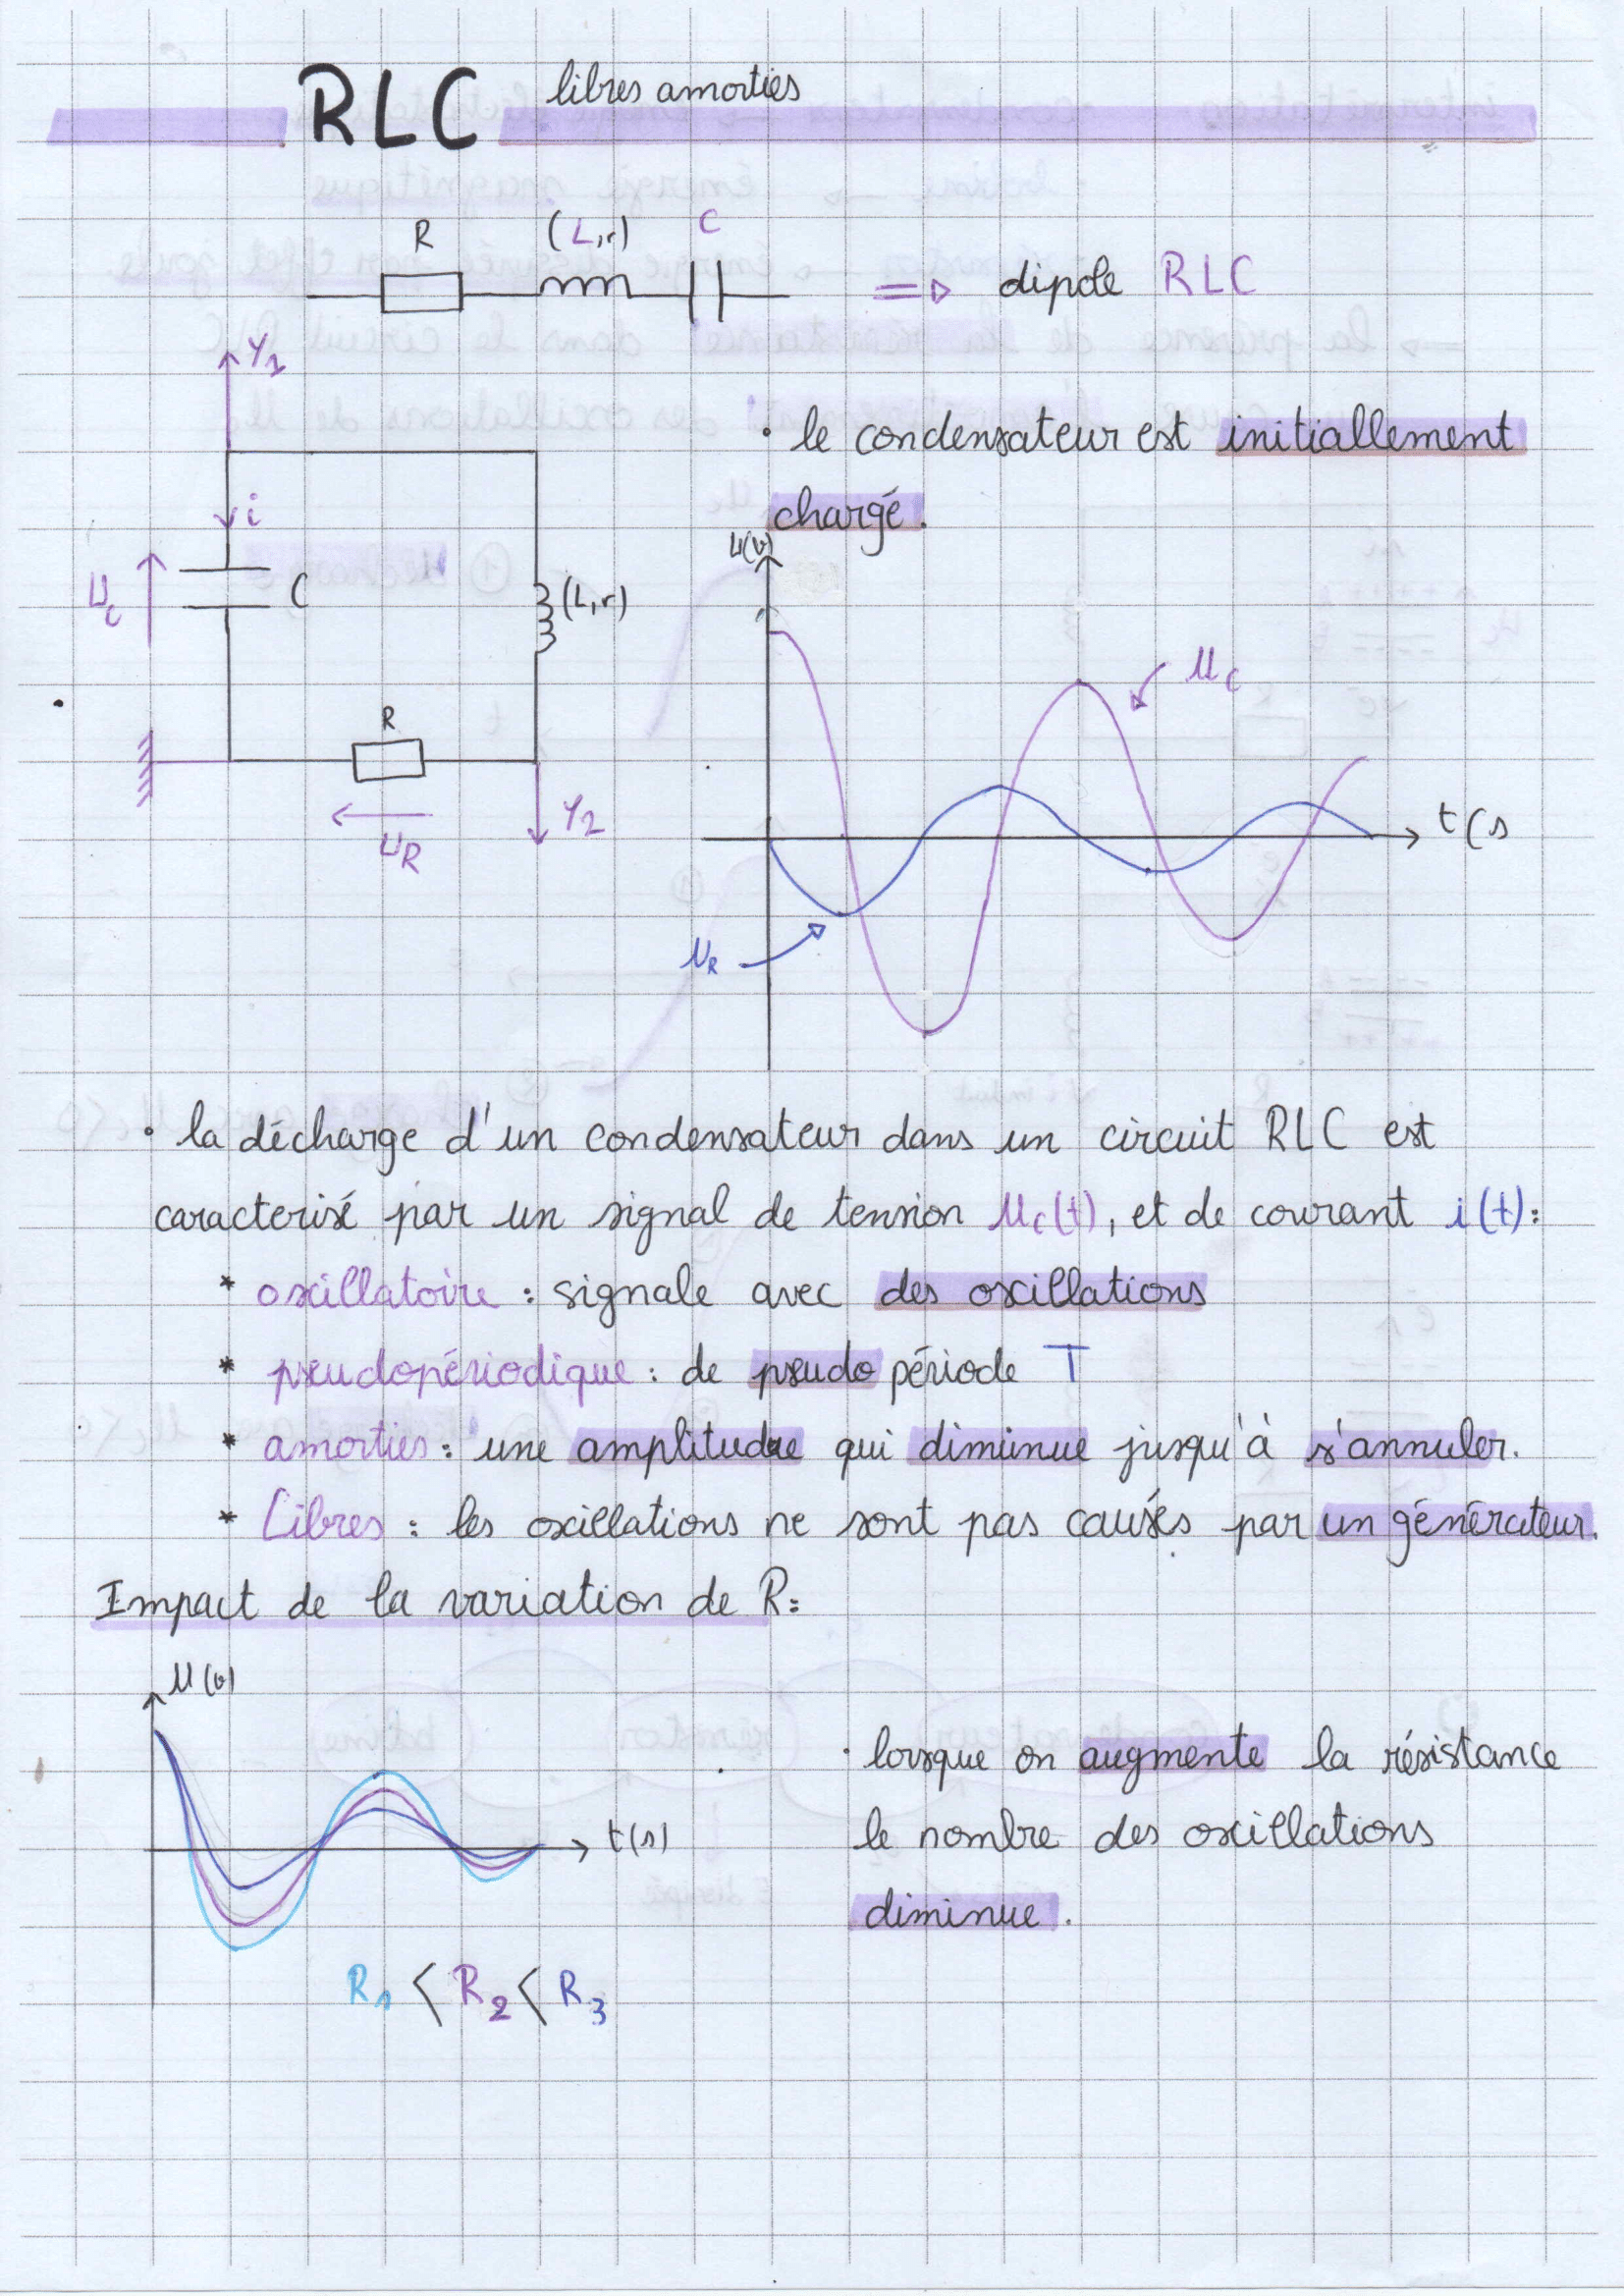 RLC libres amorties
R (L,r) C
=> dipole RLC
Y1
• le condensateur est initiallement
chargé.
i
Uc C (L,r)
R
UR Y2
U(v)
uc
t(s
uR
• la décharge d'un condensateur dans un circuit RLC est
caracterisé par un signal de tension uc(t), et de courant i(t):
* oscillatoire : signale avec des oscillations
* pseudopériodique : de pseudo période T
* amorties : une amplitude qui diminue jusqu'à s'annuler.
* Libres : les oscillations ne sont pas causés par un générateur.
Impact de la variation de R:
u(v)
t(s)
R1 < R2 < R3
• lorsque on augmente la résistance
le nombre des oscillations
diminue.